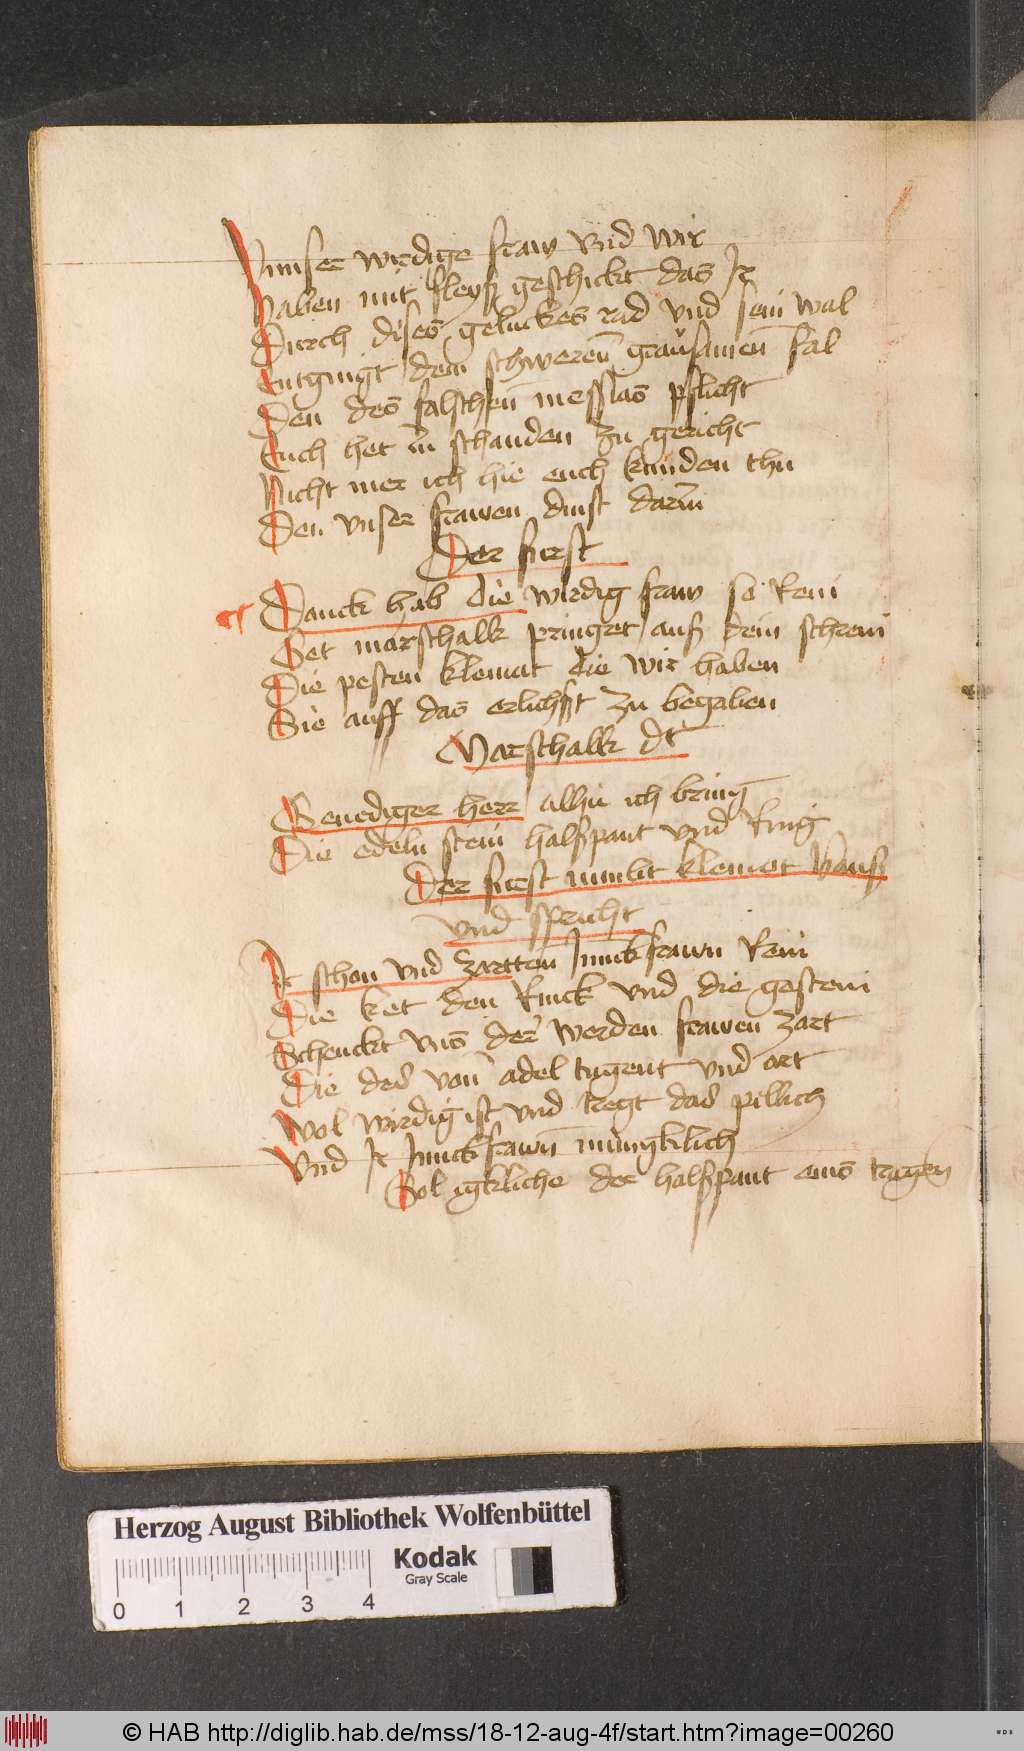 Vnnser wirdige fraw vnd wir
Haben mit fleyß geschickt das Ir
Durch dises geluckes rad vnd sein wal
Entgingt dem schweren grausamen fal
Den des falschen messias pflicht
Euch het in schanden zu gericht
Nicht mer ich hie euch kunden thu
Den vnser frawen dinst darin
Der furst
Danck hab die wirdig fraw so Rein
Get marschalk pringet auß dem schrein
Die pesten kleinat die wir haben
Sie auff das erlichst zu begaben
Marschalk dt
Genediger herr alhie ich bring
Die edeln stein halßpant vnd Ring
Der furst nimbt kleinot herauß
vnd spricht
Ir schon vnd zartten Junckfrawn Rein
Die ket den Rinck vnd die gestein
Schenckt vns der werden frawen zart
Die der von adel tugent vnd art
Wol wirdig ist vnd tregt das pillich
Vnd Ir Junckfrawn
Sol igkliche der halßpant eins tragen
Herzog August Bibliothek Wolfenbüttel
Kodak
Gray Scale
0 1 2 3 4
© HAB http://diglib.hab.de/mss/18-12-aug-4f/start.htm?image=00260